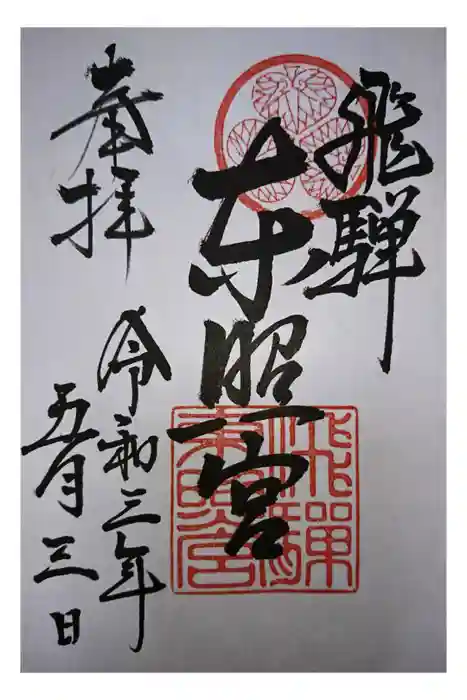 飛騨
東照宮
奉拝
令和三年
五月三日
飛騨
東照宮